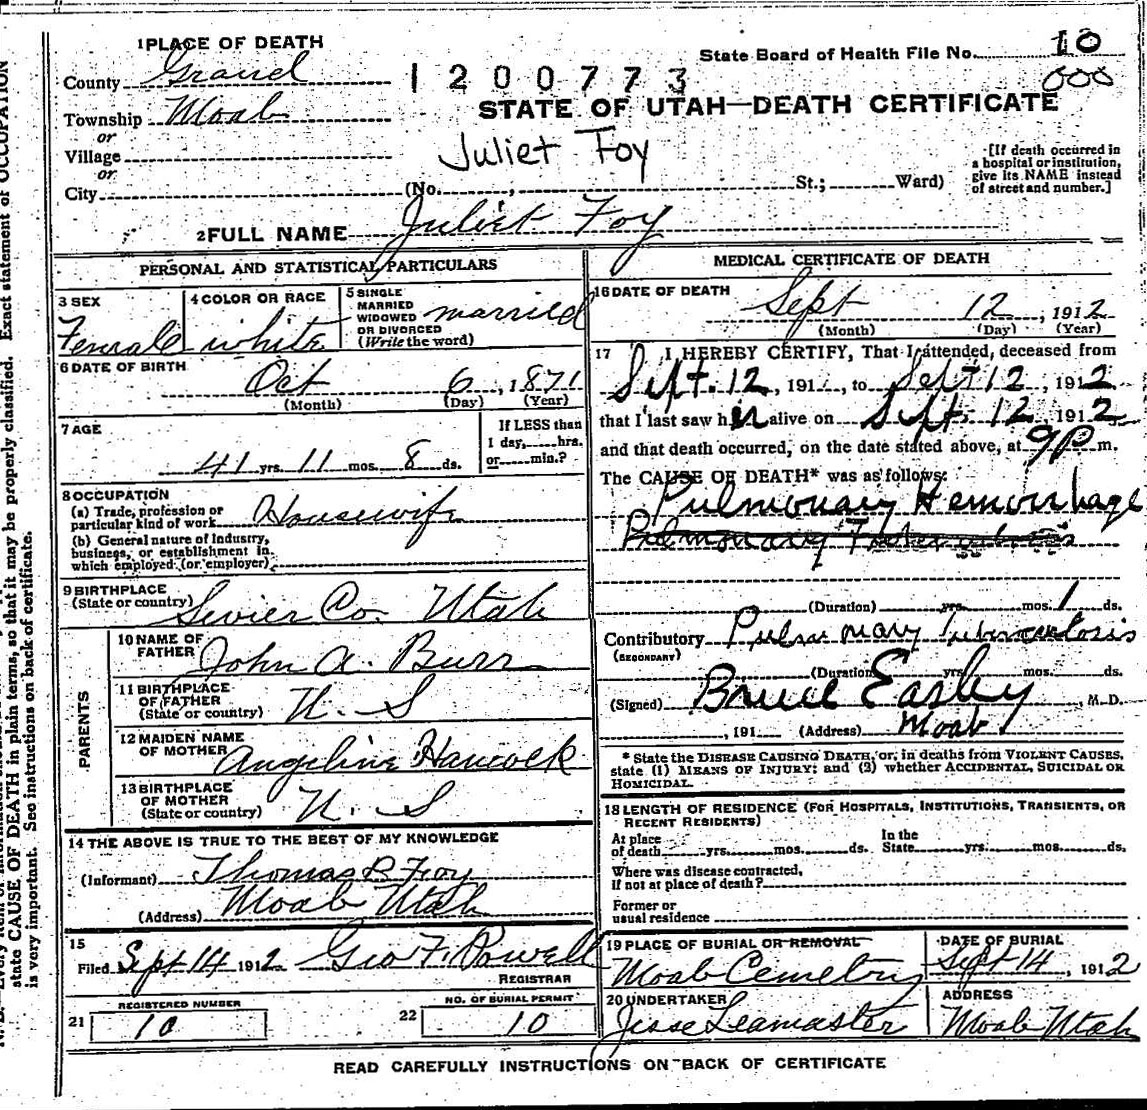 1 PLACE OF DEATH
County Grand
State Board of Health File No. 10
000
1200773
Township Moab
STATE OF UTAH—DEATH CERTIFICATE
or
Village
Juliet Foy
or
City (No. , St.; Ward)
[If death occurred in a hospital or institution, give its NAME instead of street and number.]
2 FULL NAME Juliet Foy
PERSONAL AND STATISTICAL PARTICULARS
3 SEX
Female
4 COLOR OR RACE
white
5 SINGLE MARRIED WIDOWED OR DIVORCED (Write the word)
married
6 DATE OF BIRTH
Oct 6, 1871
(Month) (Day) (Year)
7 AGE
41 yrs. 11 mos. 8 ds.
If LESS than 1 day, hrs. or min.?
8 OCCUPATION
(a) Trade, profession or particular kind of work Housewife
(b) General nature of Industry, business, or establishment in which employed (or employer)
9 BIRTHPLACE
(State or country) Sevier Co. Utah
PARENTS
10 NAME OF FATHER John A. Burr
11 BIRTHPLACE OF FATHER (State or country) U. S
12 MAIDEN NAME OF MOTHER Angeline Hancock
13 BIRTHPLACE OF MOTHER (State or country) U. S
14 THE ABOVE IS TRUE TO THE BEST OF MY KNOWLEDGE
(Informant) Thomas B Foy
(Address) Moab Utah
15
Filed Sept 14 1912 Geo F. Powell
REGISTRAR
REGISTERED NUMBER
21 10
NO. OF BURIAL PERMIT
22 10
MEDICAL CERTIFICATE OF DEATH
16 DATE OF DEATH
Sept 12, 1912
(Month) (Day) (Year)
17 I HEREBY CERTIFY, That I attended, deceased from
Sept. 12, 191 , to Sept 12, 1912
that I last saw her alive on Sept. 12 1912
and that death occurred, on the date stated above, at 9 P m.
The CAUSE OF DEATH* was as follows:
Pulmonary Hemorrhage
Pulmonary Tuberculosis
(Duration) yrs. mos. 1 ds.
Contributory Pulmonary Tuberculosis
(SECONDARY)
(Duration) yrs. mos. ds.
(Signed) Bruce Easley, M.D.
, 191 (Address) Moab
* State the DISEASE CAUSING DEATH, or, in deaths from VIOLENT CAUSES,
state (1) MEANS OF INJURY; and (2) whether ACCIDENTAL, SUICIDAL OR
HOMICIDAL.
18 LENGTH OF RESIDENCE (FOR HOSPITALS, INSTITUTIONS, TRANSIENTS, OR
RECENT RESIDENTS)
At place of death yrs. mos. ds.
In the State yrs. mos. ds.
Where was disease contracted,
if not at place of death?
Former or
usual residence
19 PLACE OF BURIAL OR REMOVAL
Moab Cemetery
DATE OF BURIAL
Sept 14, 1912
20 UNDERTAKER
Jesse Leamaster
ADDRESS
Moab Utah
READ CAREFULLY INSTRUCTIONS ON BACK OF CERTIFICATE
state CAUSE OF DEATH in plain terms, so that it may be properly classified. Exact statement of OCCUPATION
is very important. See instructions on back of certificate.